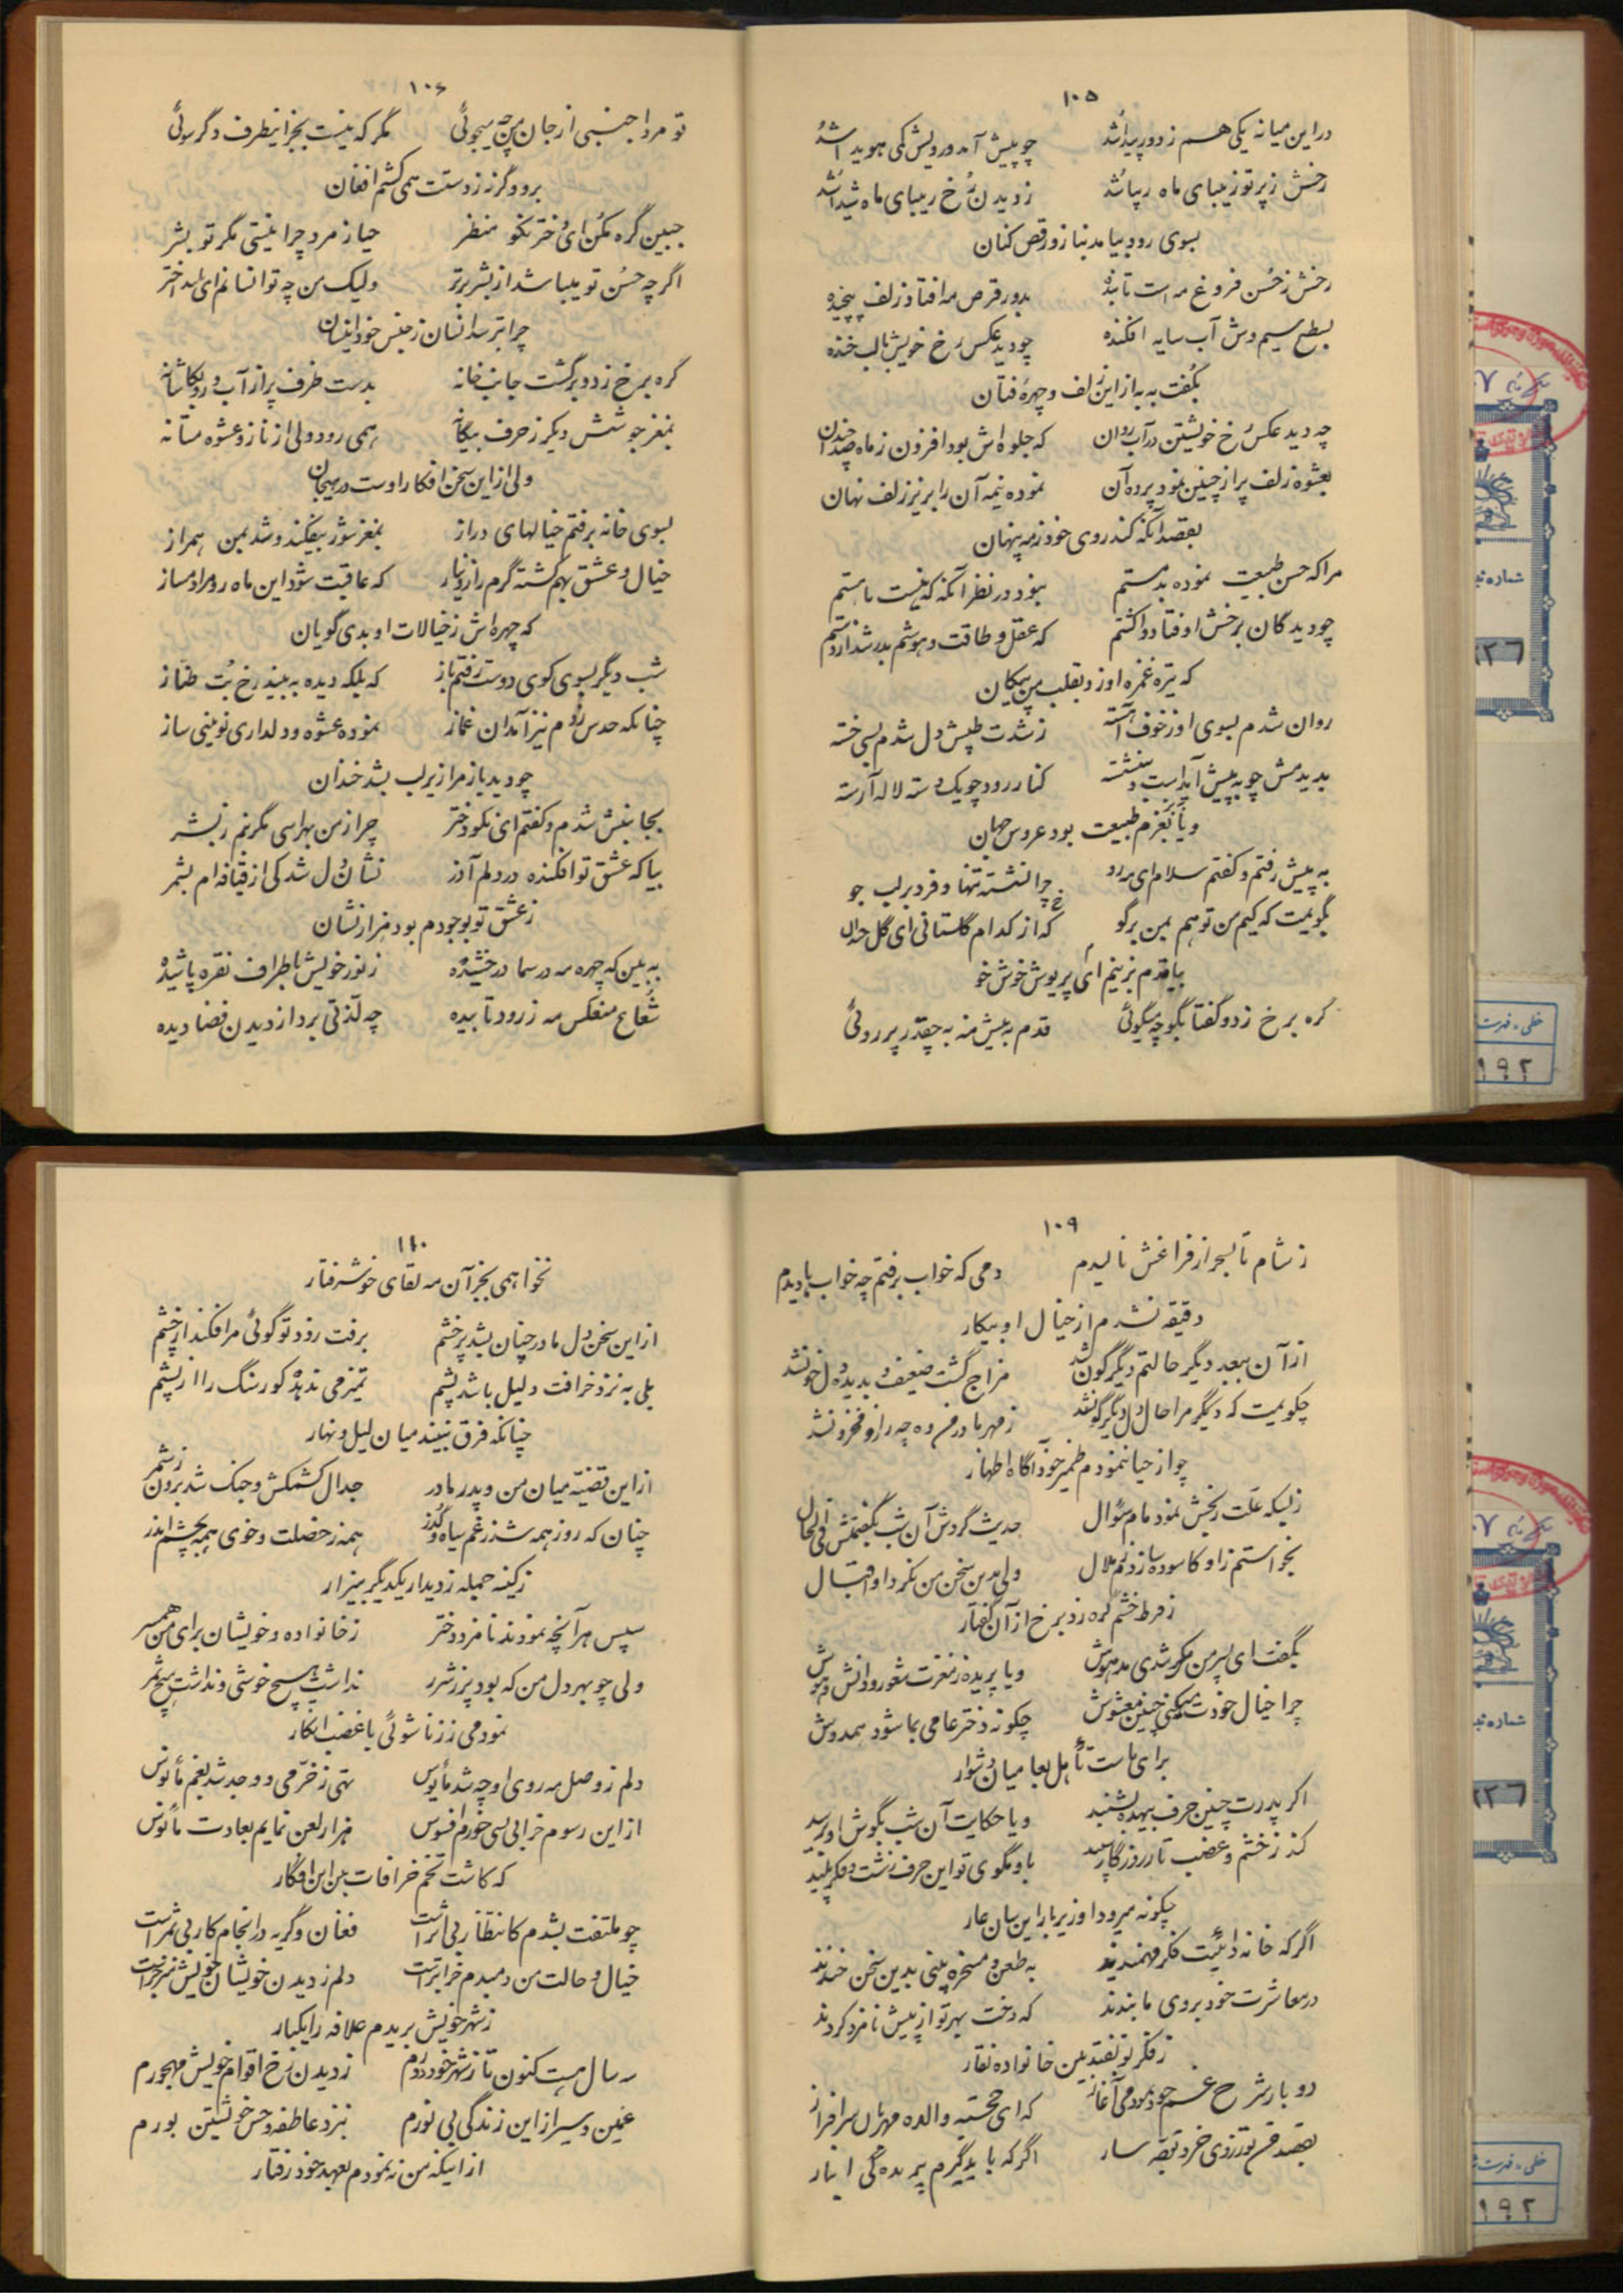 ۱۰۵
در این میانه یکی هم ز دور پیدا شد چو پیش آمد و رویش کمی هویدا شد
رخش ز پرتو زیبای ماه زیبا شد ز دیدن رخ زیبای ماه شیدا شد
بسوی رود بیامد بناز و رقص کنان
رخش ز حسن فروغ مه است تابنده بدور قرص مه افتاد زلف پیچیده
بسطح سیم وش آب سایه افکنده چو دید عکس رخ خویش با لب خنده
بگفت به به از این زلف و چهره فتان
چه دید عکس رخ خویشتن در آب روان که جلوه‌اش بود افزون ز ماه صد چندان
بعشوه زلف پر از چین نمود پرده آن نموده نیمه آن را بزیر زلف نهان
بقصد آنکه کند روی خود ز مه پنهان
مرا که حسن طبیعت نموده بد مستم نبود در نظر آنکه که نیست یا هستم
چو دیدگان برخش اوفتاد و اکستم که عقل و طاقت و هوشم بدر شد از دستم
که تیره غمزه او زد بقلب من پیکان
روان شدم بسوی او ز خوف آهسته ز شدت طپش دل شدم بسی خسته
بدیدمش چو به پیش آب است و بنشسته کنار رود چو یک دسته لاله آرسته
و یا ببزم طبیعت بود عروس جهان
به پیش رفتم و گفتم سلام ای مه رو چرا نشسته تنها و فرد بر لب جو
بگویمت که کیم من تو هم بمن برگو که از کدام گلستانی ای گل خ
بیا قدم بزنیم ای پریوش خوش خو
گره برخ زد و گفتا بگو چه میگوئی قدم به پیش منه به چقدر پر روئی
۱۰۶
تو مرد اجنبی از جان من چه میجوئی مگر که نیست بجز اینطرف دگر سوئی
برو وگرنه ز دستت همی کشم افغان
جبین گره مکن ای دختر نکو منظر حیا ز مرد چرا نیستی مگر تو بشر
اگر چه حسن تو میباشد از بشر برتر ولیک من چه تو انسانم ای بلند اختر
چرا بترسد انسان ز جنس خود اینسان
گره برخ زد و برگشت جانب خانه بدست ظرف پر از آب و رو بکاشانه
بمغز جوششش دیگر ز حرف بیگانه همی رود ولی از ناز و عشوه مستانه
ولی از این سخن افکار اوست در هیجان
بسوی خانه برفتم خیالهای دراز بمغز شور بیفکند و شد بمن همراز
خیال و عشق بهم گشته گرم راز و نیاز که عاقبت شود این ماه رو مرا دمساز
که چهره‌اش ز خیالات او بدی گویان
شب دیگر بسوی کوی دوست رفتم باز که بلکه دیده به بیند رخ بت طناز
چنانکه حدس زدم نیز آمد آن غماز نموده عشوه و دلداری نوینی ساز
چو دید باز مرا زیر لب بشد خندان
بجانبش شدم و گفتم ای نکو دختر چرا ز من بهراسی مگر نیم ز بشر
بیا که عشق تو افکنده در دلم آذر نشان دل شدکی از قیافه‌ام بشمر
ز عشق تو بوجودم بود هزار نشان
به بین که چهره مه در سما درخشیده ز نور خویش باطراف نقره پاشیده
شعاع منعکس مه ز رود تابیده چه لذتی برد از دیدن فضا دیده
۱۰۹
ز شام تا بسحر از فراغش نالیدم دمی که خواب برفتم چه خوابها دیدم
دقیقه نشدم از خیال او بیکار
از آن ببعد دیگر حالتم دیگرگون شد مزاج گشت ضعیف و بدیده دل خونشد
چگویمت که دیگر مرا حال دل دیگرگونشد ز مهر مادر من وه چه راز و فخزونشد
چو از حیا ننمودم ضمیر خود آگاه اظهار
ز بسکه علت رنجش نمود مام سؤال حدیث گردش آن شب بگفتمش فی الحال
بخواستم ز او کاسوده سازدم ز ملال ولی بدین سخن من نکرد او اقبال
ز فرط خشم گره زد برخ از آن گفتار
بگفت ای پسر من مگر شدی مدهوش و یا پریده ز مغزت شعور و دانش و هوش
چرا خیال خودت میکنی چنین مغشوش چگونه دختر عامی بما شود همدوش
برای ماست تأهل بعامیان دشوار
اگر پدرت چنین حرف بیهده بشنید و یا حکایت آن شب بگوش او برسید
کند ز خشم و غضب تار روزگار سپید باو مگوی تو این حرف زشت و فکر پلید
چگونه میرود او زیر بار این سان عار
اگر که خانه دائیت فکر فهمیدند به طعن و مسخره بینی بدین سخن خندند
در معاشرت خود بروی ما بندند که دخت بهر تو از پیش نامزد کردند
ز فکر تو نفتد بین خانواده نقار
دوباره شرح غم خود نمودمی آغاز که ای خجسته والده مهربان سرافراز
اگر که باید گیرم پریده گی انبار
۱۱۰
نخواهمی بجز آن مه لقای خوشرفتار
از این سخن دل مادر چنان بشد پر خشم برفت زود تو گوئی مرا فکند از چشم
بلی به نزد خرافت دلیل باشد پشم تمیز می ندهد کور سنگ را از پشم
چنانکه فرق نبیند میان لیل و نهار
از این قضیه میان من و پدر مادر جدال کشمکش و جنگ شد برون ز شمر
چنان که روز همه شد ز غم سیاه و کدر همه ز خصلت و خوی همه بچشم اندر
ز کینه جمله ز دیدار یکدیگر بیزار
سپس هر آنچه نمودند نامزد دختر ز خانواده و خویشان برای من همسر
ولی چو بهر دل من که بود پر ز شرر نداشت هیچ خوشی و نداشت هیچ ثمر
نمودمی ز زناشوئی با غضب انکار
دلم ز وصل مه روی او چه شد مأیوس تهی ز خرمی و وجد شد بغم مأنوس
از این رسوم خرابی بسی خورم افسوس هزار لعن نمایم بعادت مأنوس
که کاشت تخم خرافات بین این افکار
چو ملتفت بشدم کانتظار بی اثر است فغان و گریه در انجام کار بی ثمر است
خیال و حالت من دمبدم خرابتر است دلم ز دیدن خویشان خویش منزجر است
ز شهر خویش بریدم علاقه را یکبار
سه سال هست کنون تا ز شهر خود دورم ز دیدن رخ اقوام خویش مهجورم
غمین و سیر از این زندگی بی نورم بنزد عاطفه و حس خویشتن بورم
از اینکه من نه نمودم بعهد خود رفتار
شماره ثبت
۱۹۲